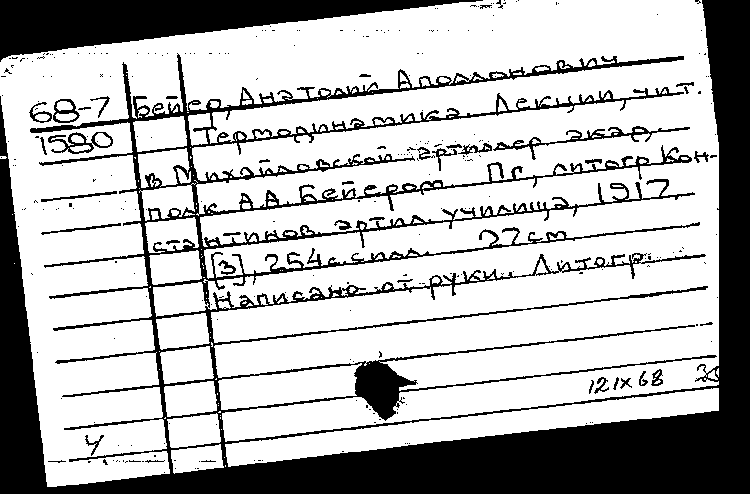 68-7 Бейер, Анатолий Аполлонович
1580 Термодинамика. Лекции, чит.
в Михайловской артиллер. акад.
полк. А.А. Бейером. Пг., литогр Кон-
стантинов. артил. училища, 1917.
[3], 254 с. с илл. 27 см
Написано от руки. Литогр.
121х68
4